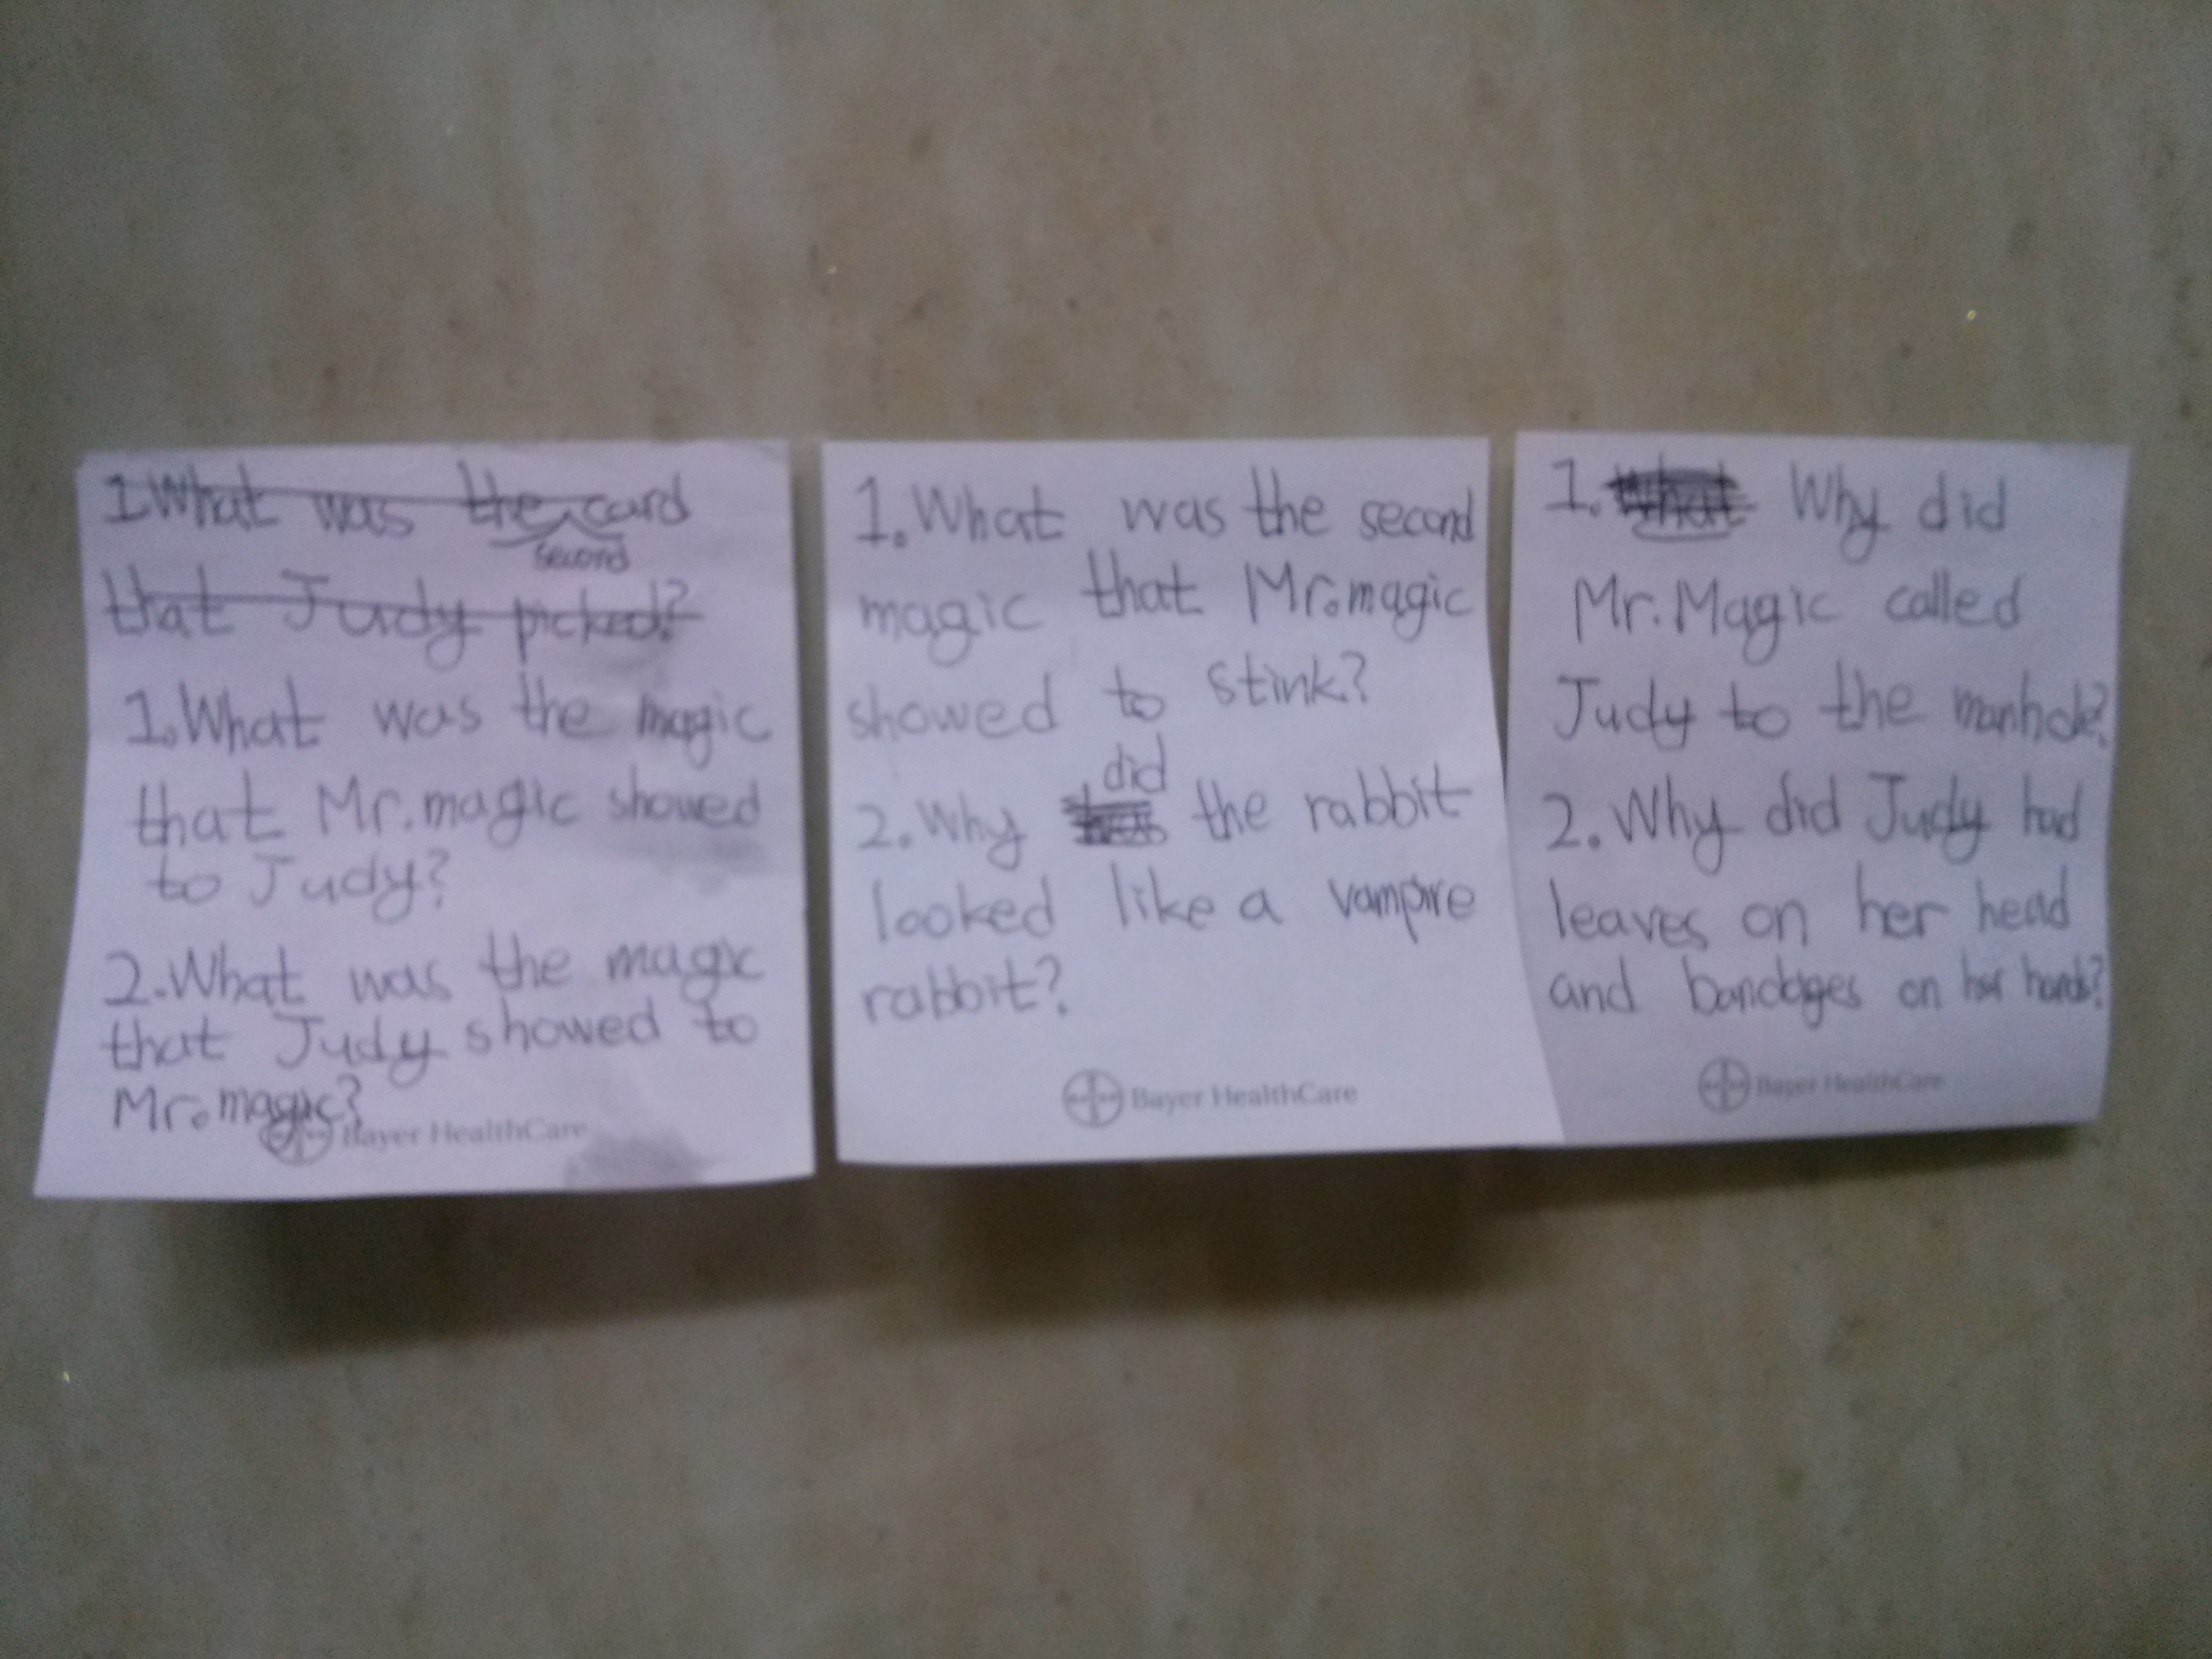 1 What was the card
second
that Judy picked?
1. What was the magic
that Mr. magic showed
to Judy?
2. What was the magic
that Judy showed to
Mr. magic?
Bayer HealthCare
1. What was the second
magic that Mr. magic
showed to stink?
did
2. Why the rabbit
looked like a vampire
rabbit?
Bayer HealthCare
1. What Why did
Mr. Magic called
Judy to the manhole?
2. Why did Judy had
leaves on her head
and bandages on her hands?
Bayer HealthCare